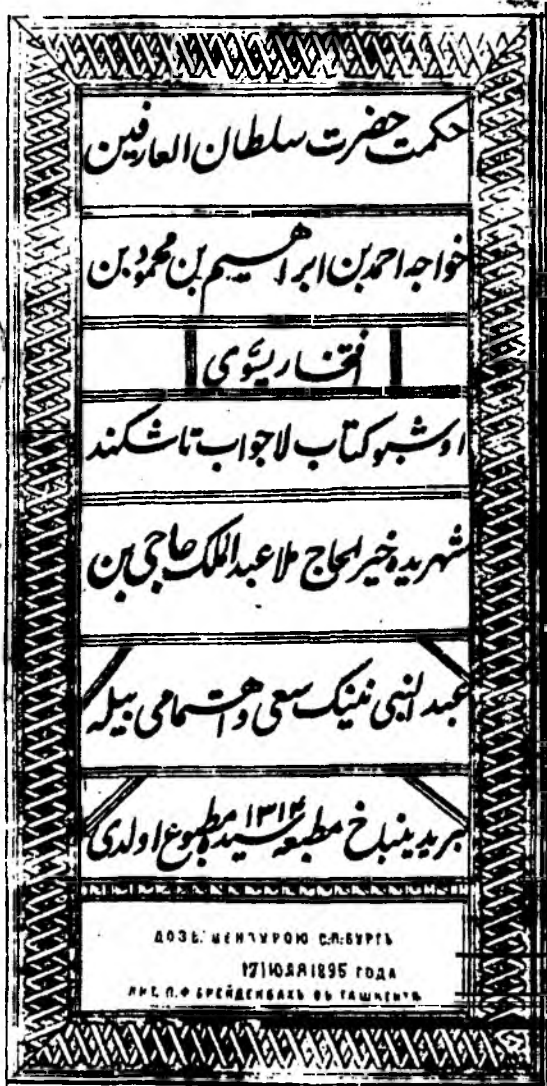 حکمت حضرت سلطان العارفین
خواجه احمد بن ابراهیم بن محمود بن
افتخار یسّوی
اوشبو کتاب لاجواب تاشکند
شهریده خیر الحاج ملا عبد الملک حاجی بن
عبد النبی نینک سعی و اهتمامی بیله
بریدینباخ مطبعه سیده ۱۳۱۴ مطبوع اولدی
ДОЗВ. ЦЕНЗУРОЮ С.П.БУРГЪ
17 ІЮЛЯ 1895 ГОДА
ЛИТ. П.Ф БРЕЙДЕНБАХЪ ВЪ ТАШКЕНТѢ